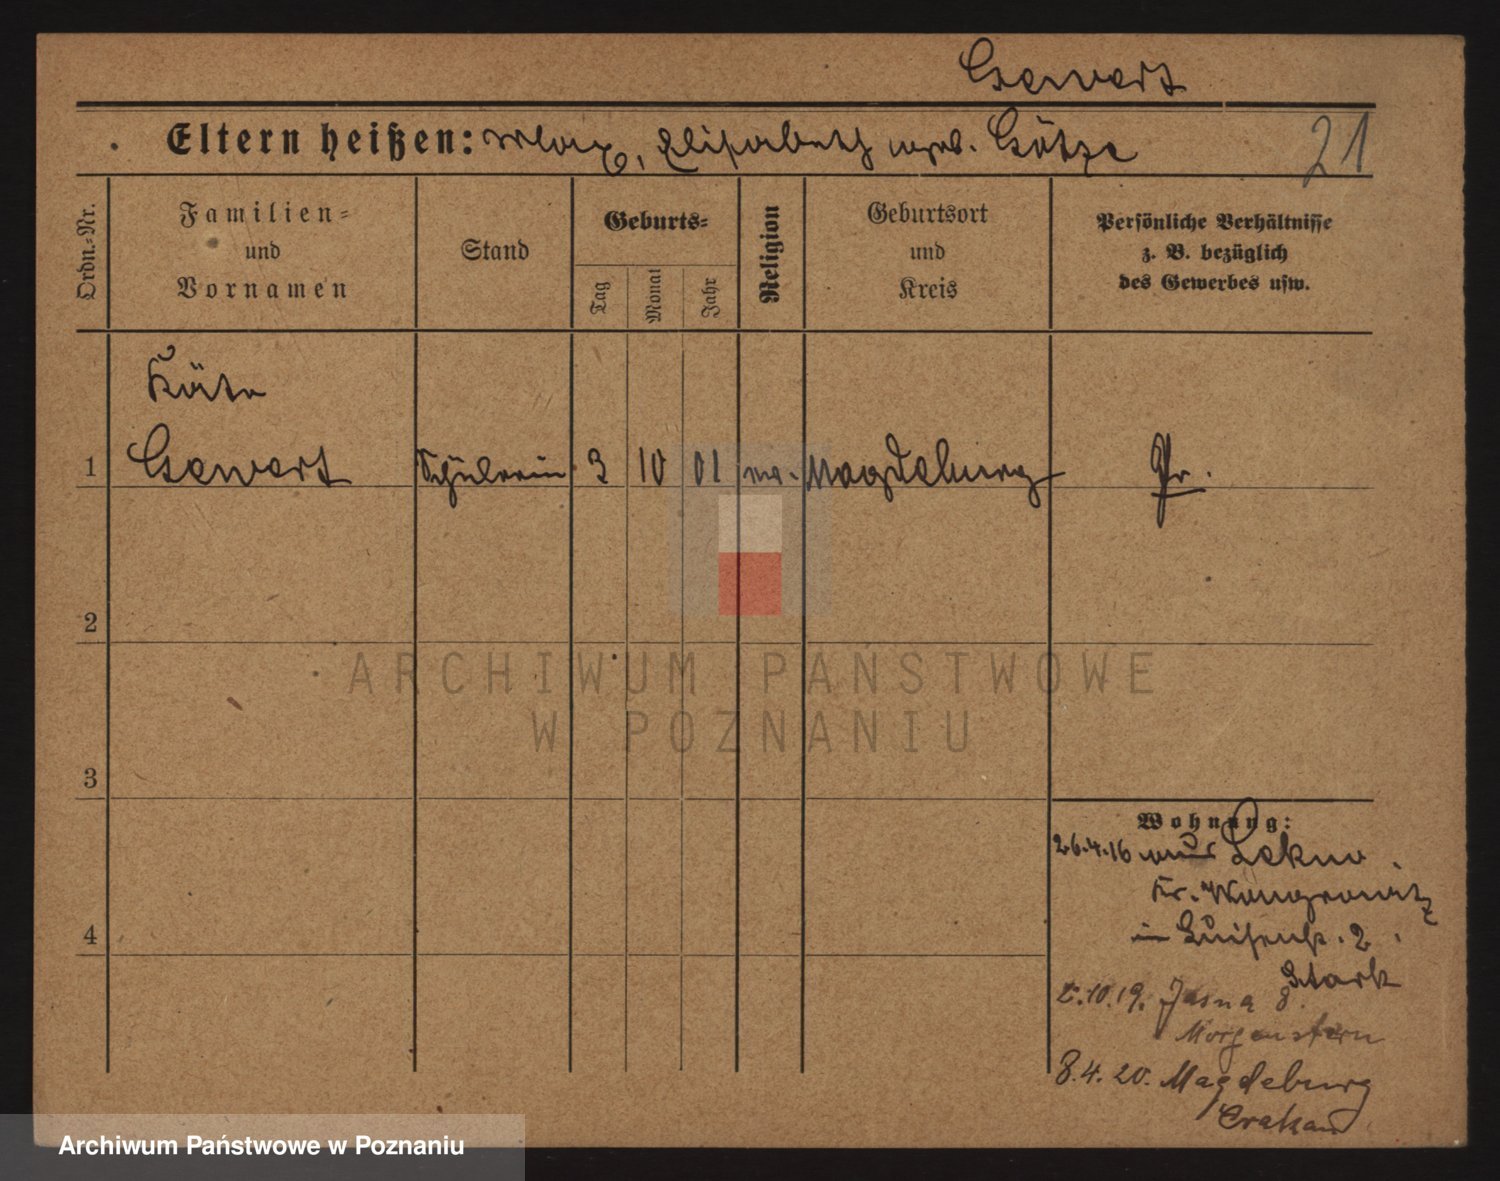 Gewert
Eltern heißen: Max, Elisabeth geb. Götze
21
Ordn.-Nr.
Familien-
und
Vornamen
Stand
Geburts-
Tag
Monat
Jahr
Religion
Geburtsort
und
Kreis
Persönliche Verhältnisse
z. B. bezüglich
des Gewerbes usw.
Käte
1 Gewert Schülerin 3 10 01 ev. Magdeburg Pr.
2
ARCHIWUM PAŃSTWOWE
W POZNANIU
3
Wohnung:
26.4.16 aus Lekno.
Kr. Wongrowitz
4
in Luisenstr. 2.
Stark
10.19. Jasna 8.
Morgenstern
8.4.20. Magdeburg
Crakau
Archiwum Państwowe w Poznaniu